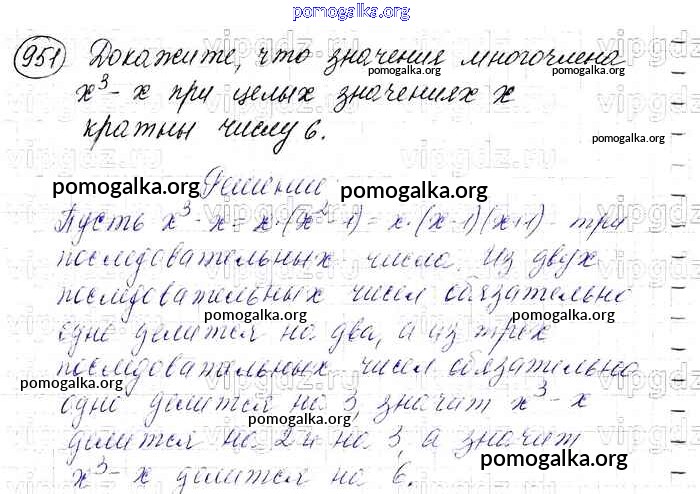 pomogalka.org
951 Докажите, что значения многочлена
pomogalka.org pomogalka.org
x³ - x при целых значениях x
кратны числу 6.
pomogalka.org
vipgdz.ru
Решение:
pomogalka.org pomogalka.org
Пусть x³ - x = x · (x² - 1) = x · (x - 1)(x + 1) - три
последовательных числа. Из двух
последовательных чисел обязательно
pomogalka.org pomogalka.org
одно делится на два, а из трех
последовательных чисел обязательно
pomogalka.org
одно делится на 3, значит x³ - x
pomogalka.org
делится на 2 и на 3, а значит
x³ - x делится на 6.
pomogalka.org